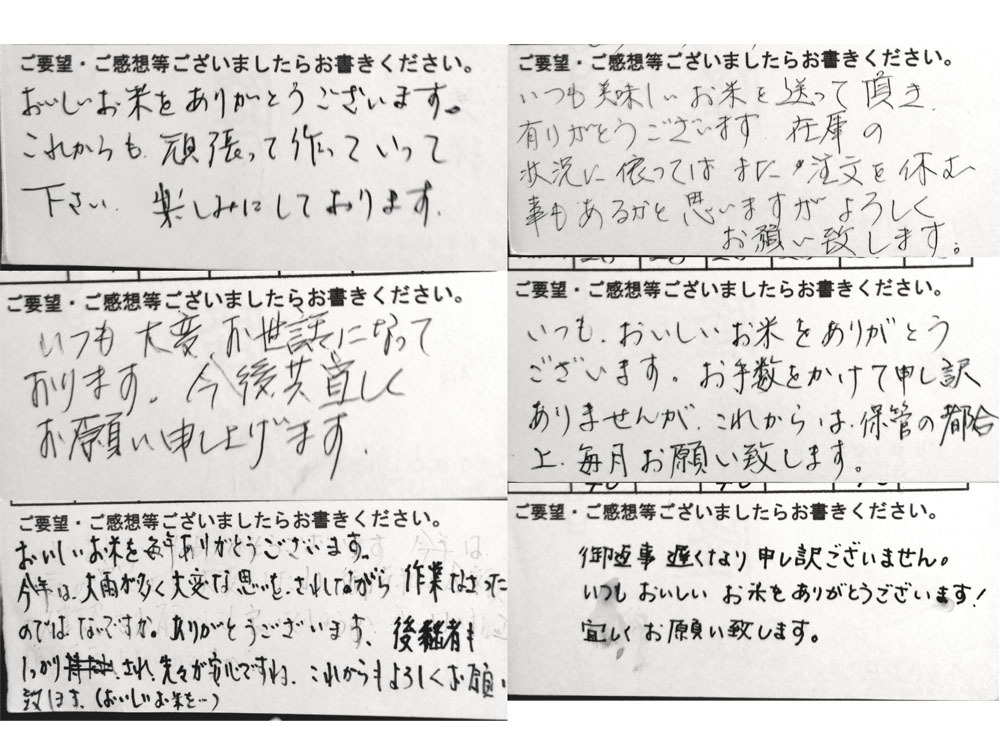 ご要望・ご感想等ございましたらお書きください。
おいしいお米をありがとうございます。
これからも、頑張って作っていって
下さい、楽しみにしております。
ご要望・ご感想等ございましたらお書きください。
いつも美味しいお米を送って頂き、
有りがとうございます 在庫の
状況に依ってはまた、注文を休む
事もあるかと思いますがよろしく
お願い致します。
ご要望・ご感想等ございましたらお書きください。
いつも大変、お世話になって
おります。今後共宜しく
お願い申し上げます。
ご要望・ご感想等ございましたらお書きください。
いつも、おいしいお米をありがとう
ございます。お手数をかけて申し訳
ありませんが、これからは、保管の都合
上、毎月お願い致します。
ご要望・ご感想等ございましたらお書きください。
おいしいお米を毎年ありがとうございます。
今年は、大雨が多く大変な思いを、されながら 作業なさった
のではないですか。ありがとうございます、後継者も
しっかり され、先々が安心ですね、これからもよろしくお願い
致します、(おいしいお米を…)
ご要望・ご感想等ございましたらお書きください。
御返事遅くなり申し訳ございません。
いつもおいしいお米をありがとうございます!
宜しくお願い致します。